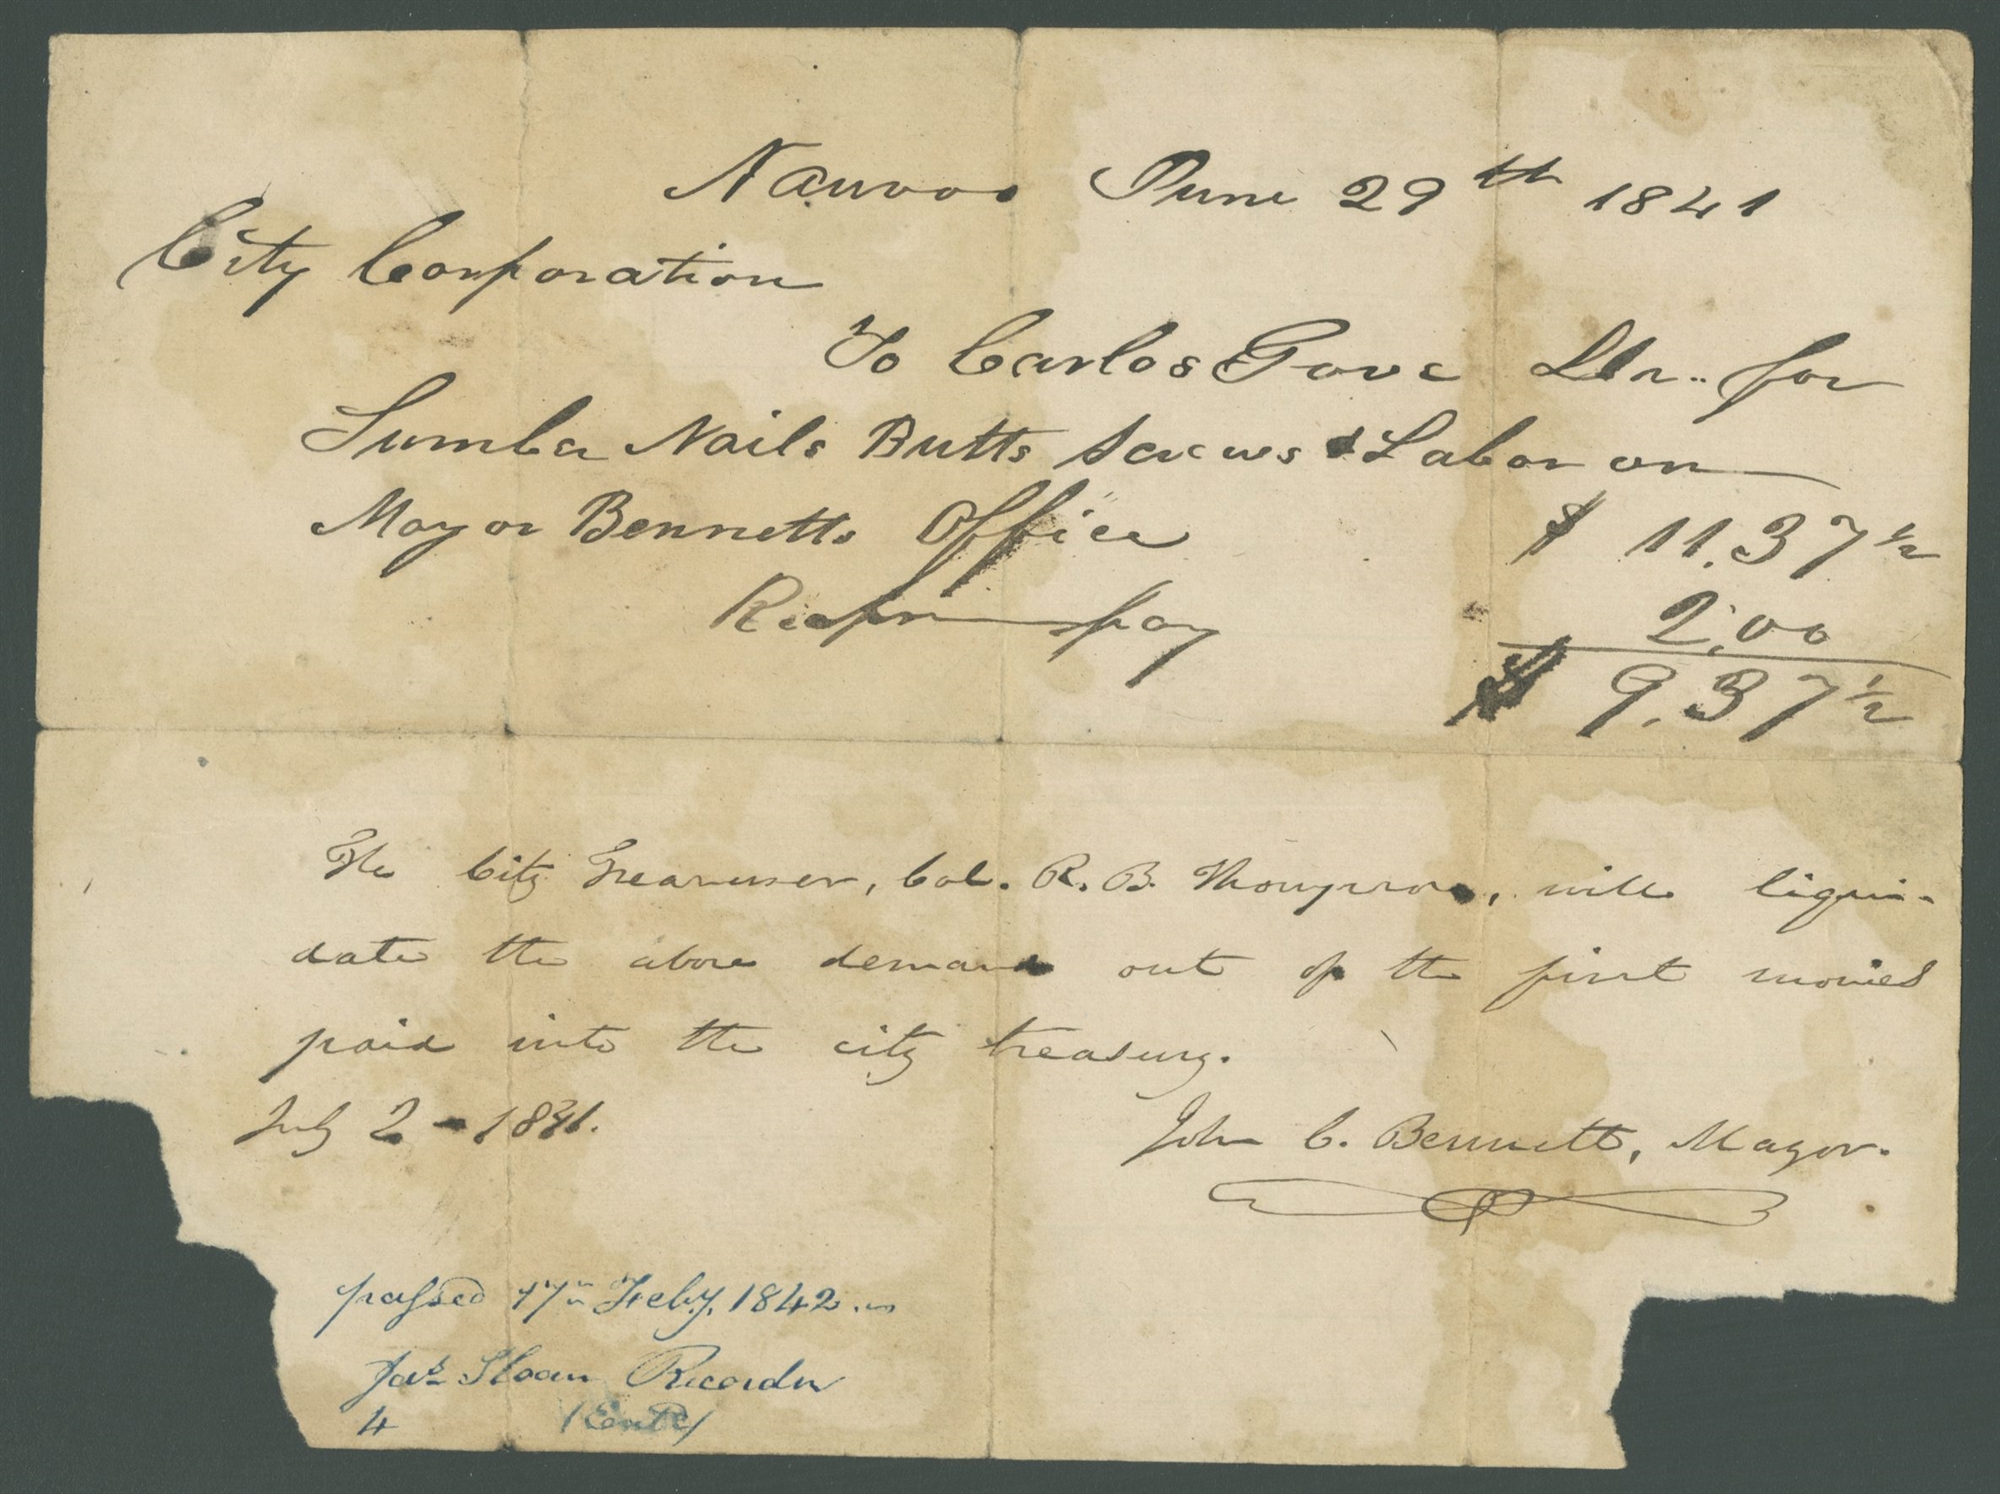 Nauvoo June 29th 1841
City Corporation
To Carlos Gove Dr.. for
Lumber Nails Butts Screws & Labor on
Mayor Bennetts Office $ 11.37 1/2
pay 2.00
$ 9.37 1/2
The City Treasurer, Col. R. B. Thompson, will liqui-
date the above demand out of the first monies
paid into the city treasury.
July 2 - 1841.
John C. Bennett, Mayor.
passed 17th Feby. 1842.
Jas. Sloan Recorder
4 (Entd)